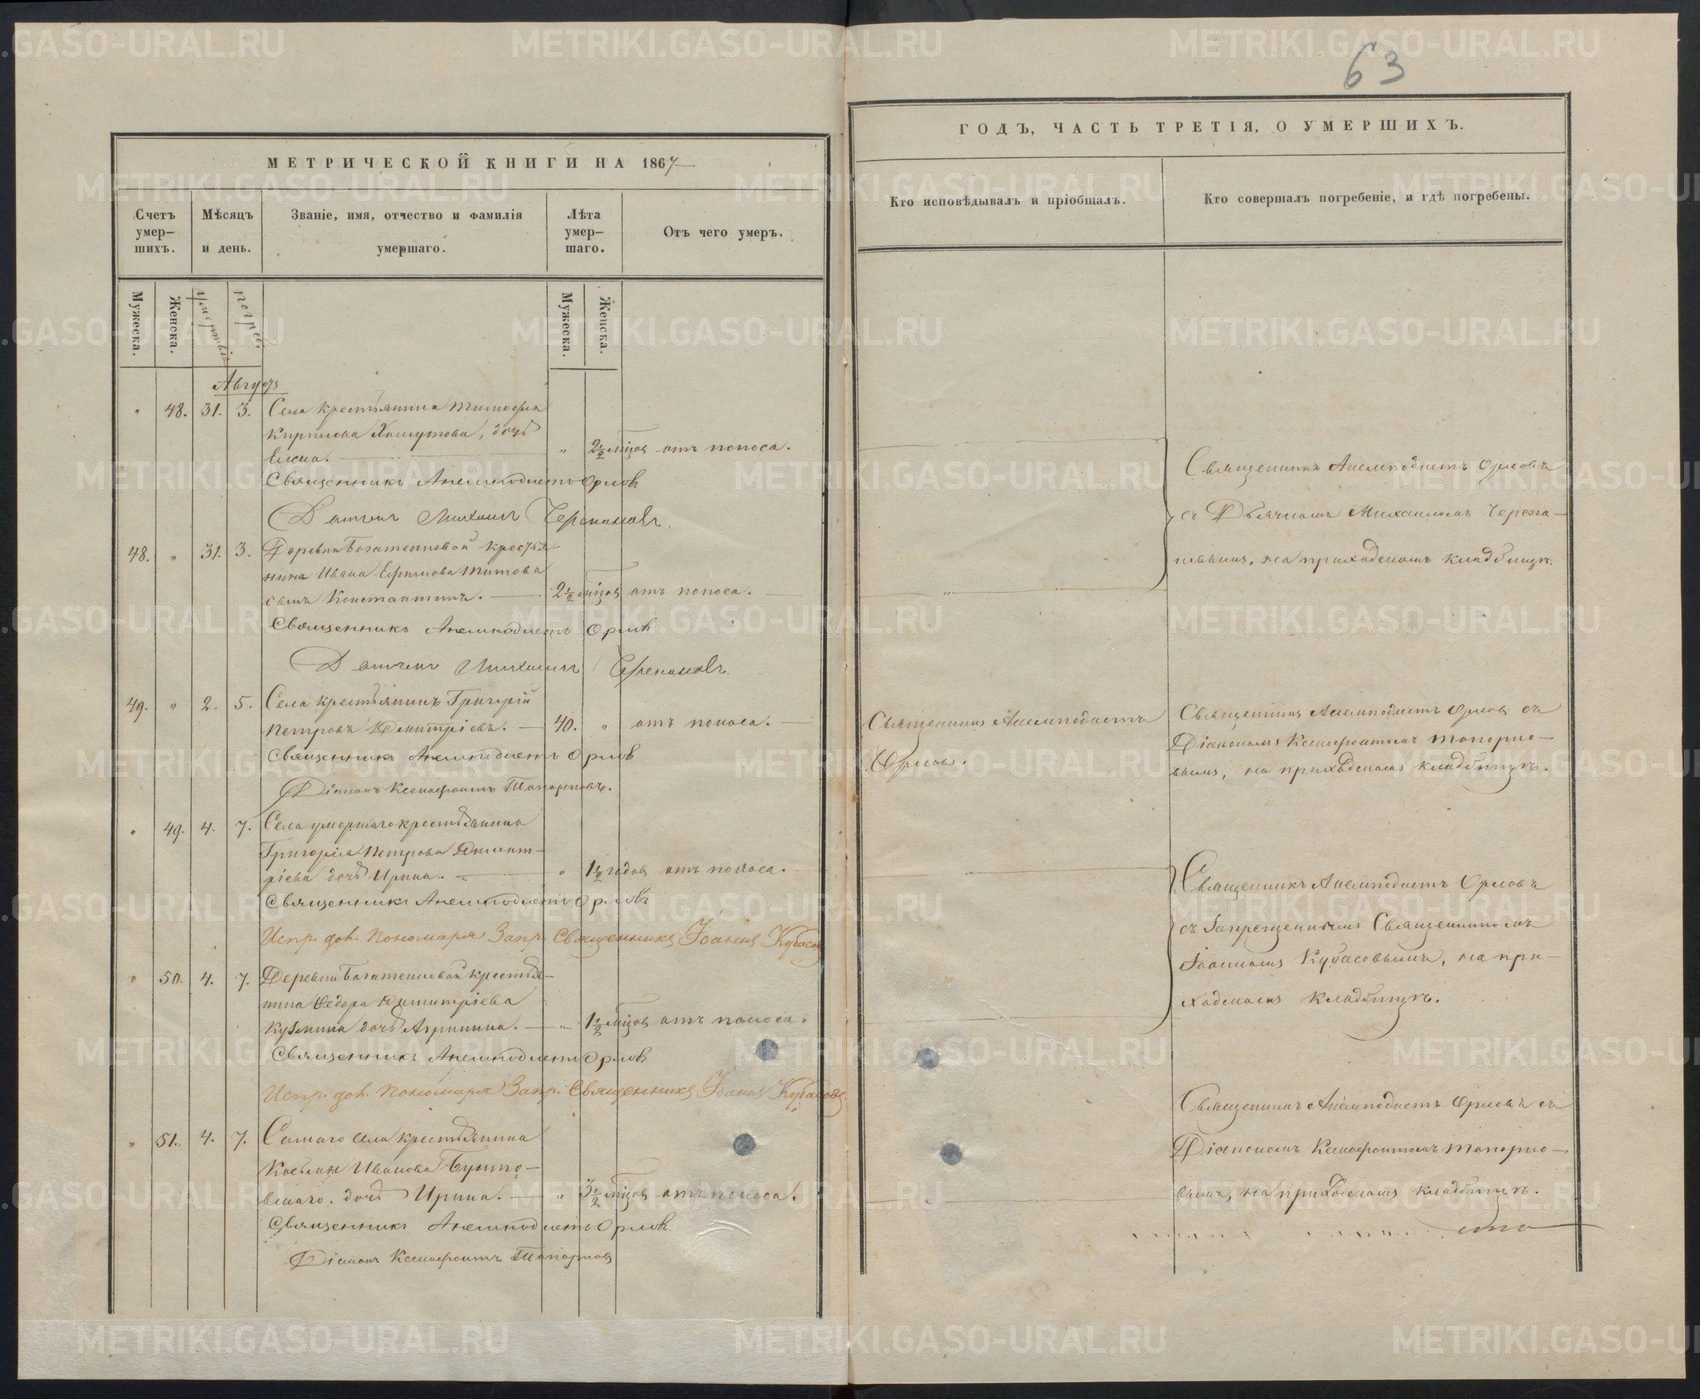 63
МЕТРИЧЕСКОЙ КНИГИ НА 1867
ГОДЪ, ЧАСТЬ ТРЕТІЯ, О УМЕРШИХЪ.
Счетъ умер-
шихъ.
Мѣсяцъ
и день.
Званіе, имя, отчество и фамилія
умершаго.
Лѣта
умер-
шаго.
Отъ чего умеръ.
Кто исповѣдывалъ и пріобщалъ.
Кто совершалъ погребеніе, и гдѣ погребены.
Мужеска.
Женска.
Мужеска.
Женска.
Августъ
" 48. 31. 3. Села крестьянина Тимофея
Кирилова Хомутова, дочь
" 2½ мѣцов отъ поноса.
Священникъ Анемподистъ Орловъ
Дьячекъ Михаилъ Черепановъ.
48. " 31. 3. Деревни Богатенковой крестья-
нина Ивана Ефимова Титова
сынъ Константинъ. — 2½ мѣцов отъ поноса.
Священникъ Анемподистъ Орловъ
Дьячекъ Михаилъ Черепановъ.
Священникъ Анемподистъ Орловъ
съ Дьячкомъ Михаиломъ Черепа-
новымъ, на приходскомъ кладбищѣ.
49. " 2. 5. Села крестьянинъ Григорій
Петровъ Димитріевъ. — 40. " отъ поноса. —
Священникъ Анемподистъ Орловъ
Діаконъ Ксенофонтъ Топорковъ.
Священникъ Анемподистъ
Орловъ.
Священникъ Анемподистъ Орловъ съ
Діакономъ Ксенофонтомъ Топорко-
вымъ, на приходскомъ кладбищѣ.
" 49. 4. 7. Села умершаго крестьянина
Григорія Петрова Димит-
ріева дочь Ирина. — " 1½ годов отъ поноса.
Священникъ Анемподистъ Орловъ
Испр. дол. Пономаря Запр. Священникъ Іоаннъ Кубасов
" 50. 4. 7. Деревни Богатенковой крестья-
нина Ѳедора Димитріева
Кузмина дочь Агрипина. — " 1½ мѣцов отъ поноса.
Священникъ Анемподистъ Орловъ
Испр. дол. Пономаря Запр. Священникъ Іоаннъ Кубасовъ
Священникъ Анемподистъ Орловъ
съ Запрещеннымъ Священникомъ
Іоанномъ Кубасовымъ, на при-
ходскомъ кладбищѣ.
" 51. 4. 7. Самаго села крестьянина
Ивановa
дочь Ирина. — " 3½ мѣцов отъ поноса.
Священникъ Анемподистъ Орловъ
Діаконъ Ксенофонтъ Топорковъ
Священникъ Анемподистъ Орловъ съ
Діакономъ Ксенофонтомъ Топорко-
вымъ, на приходскомъ кладбищѣ.
METRIKI.GASO-URAL.RU